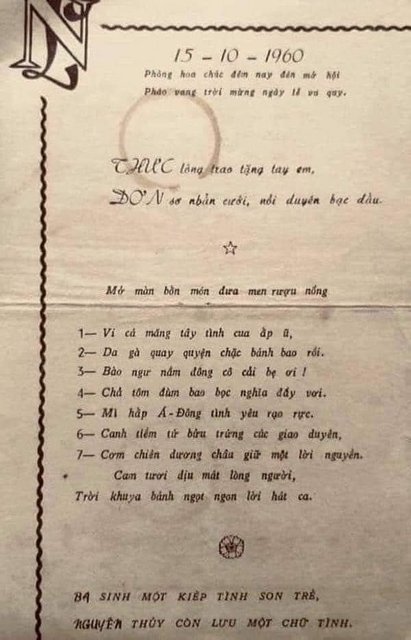 15 - 10 - 1960
Phòng hoa chúc đêm nay đèn mở hội
Pháo vang trời mừng ngày lễ vu quy.
THỰC lòng trao tặng tay em,
ĐƠN sơ nhẫn cưới, nối duyên bạc đầu.
Mở màn bốn món đưa men rượu nồng
1— Vi cá măng tây tình cua ấp ủ,
2— Da gà quay quyện chặc bánh bao rồi.
3— Bào ngư nấm đông cô cải bẹ ơi !
4— Chả tôm đùm bao bọc nghĩa đầy vơi.
5— Mì hấp Á-Đông tình yêu rạo rực.
6— Canh tiềm tứ bửu trứng cúc giao duyên,
7— Cơm chiên dương châu giữ một lời nguyền.
Cam tươi dịu mát lòng người,
Trời khuya bánh ngọt ngon lời hát ca.
84 SINH MỘT KIẾP TÌNH SON TRẺ,
NGUYÊN THỦY CÒN LƯU MỘT CHỮ TÌNH.